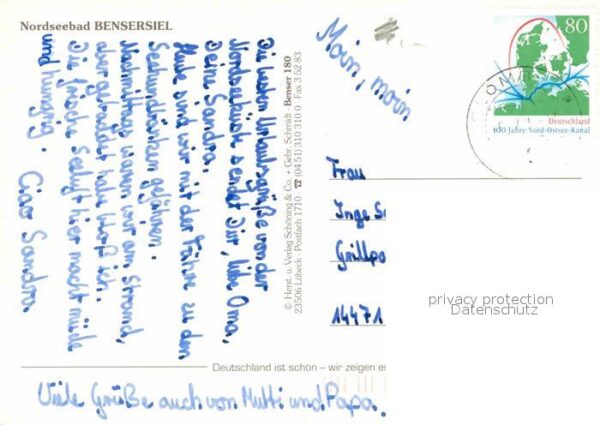 Nordseebad BENSERSIEL
Moin, moin
Die lieben Urlaubsgrüße von der
Nordseeküste sendet Dir, liebe Oma,
Deine Sandra.
Heute sind wir mit der Fähre zu den
Seehundbänken gefahren.
Nachmittags waren wir am Strand,
aber gebadet habe ich.
Die frische Seeluft hier macht müde
und hungrig. Ciao Sandra.
Viele Grüße auch von Mutti und Papa.
© Herst. u. Verlag Schöning & Co. + Gebr. Schmidt Benser 180
23506 Lübeck · Postfach 1710 · ☎ (04 51) 310 310 0 · Fax 3 52 83
80
Deutschland
100 Jahre Nord-Ostsee-Kanal
Frau
Inge S
Grillpa
14471
privacy protection
Datenschutz
Deutschland ist schön – wir zeigen es